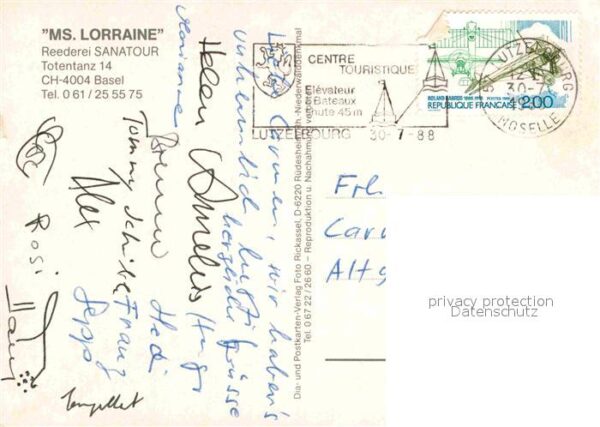 "MS. LORRAINE"
Reederei SANATOUR
Totentanz 14
CH-4004 Basel
Tel. 0 61 / 25 55 75
CENTRE
TOURISTIQUE
Elévateur
à Bateaux
chute 45 m
LUTZELBOURG 30-7-88
LUTZELBOURG
12 H
30-7
MOSELLE
REPUBLIQUE FRANÇAISE 2,00
Dia- und Postkarten-Verlag Foto Rickassel, D-6220 Rüdesheim/Rh.-Niederwalddenkmal
Tel. 0 67 22 / 26 60 – Reproduktion u. Nachahmung verboten
wir haben's
unheimlich lustig
herzliche Grüsse
Helen
Hugo
Marianne
Bruno
Hedi
Tommy
Franz
Alex
Seppi
Rosi
Frl.
privacy protection
Datenschutz